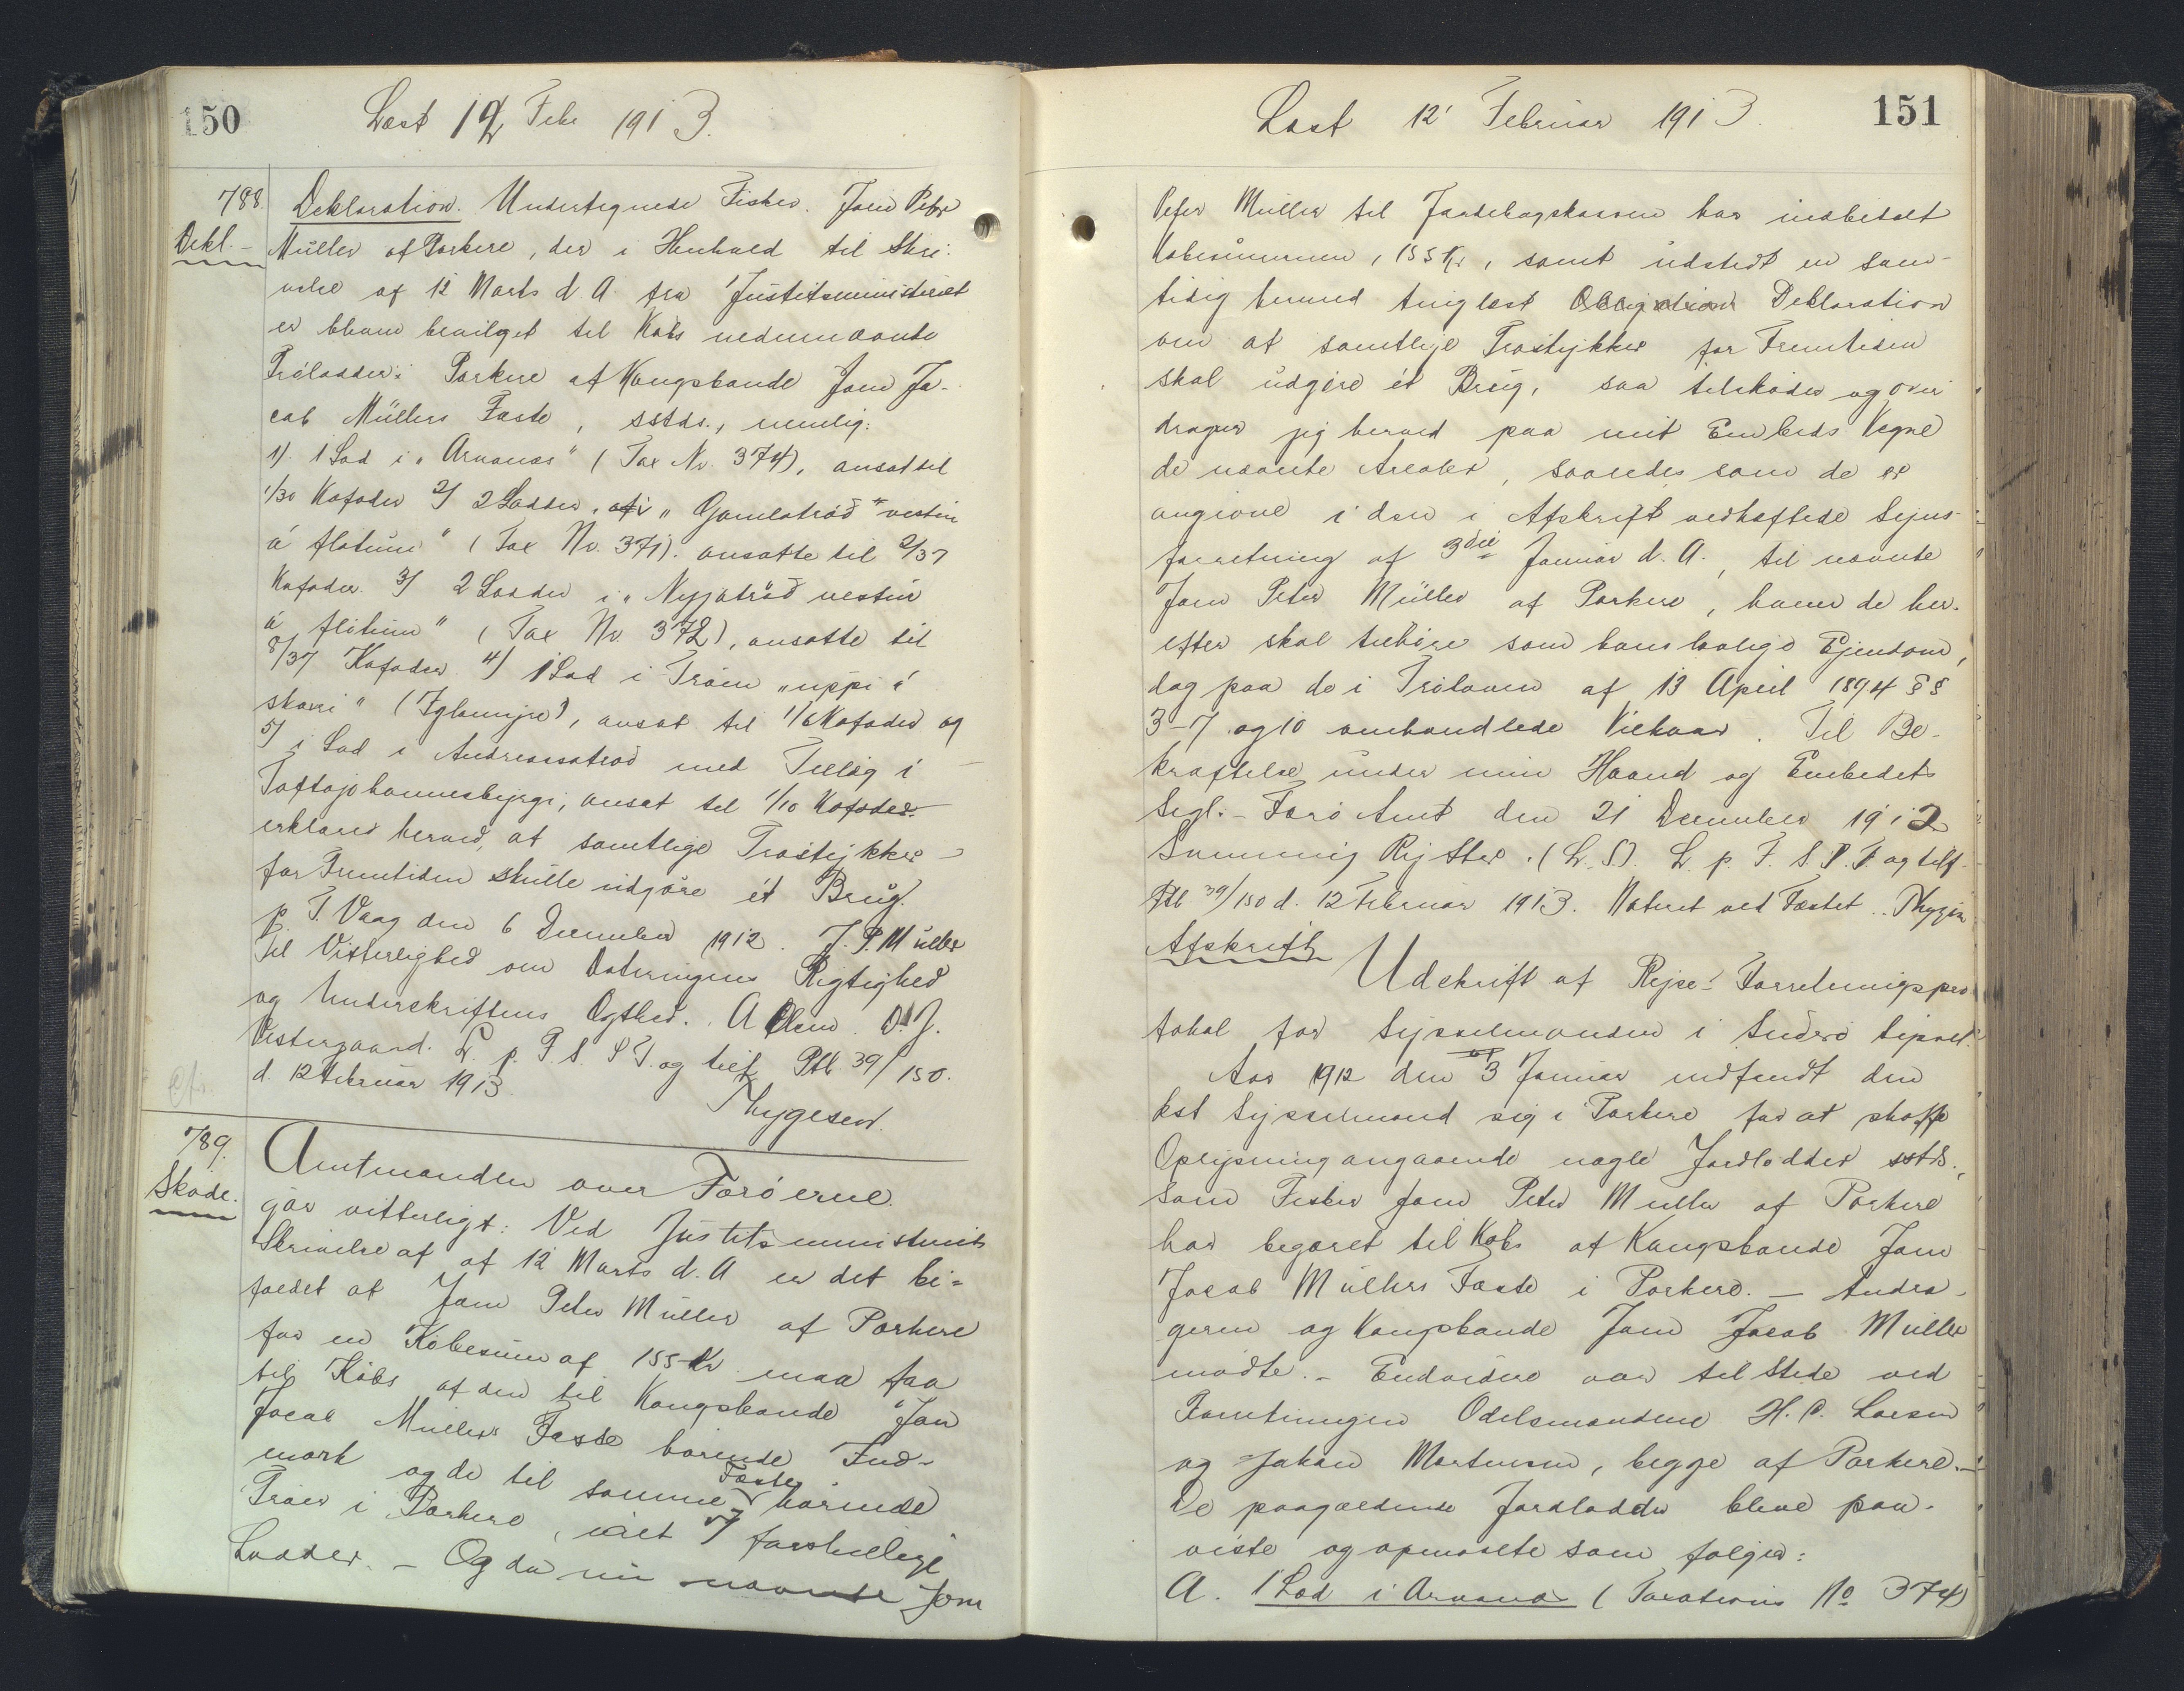 150
Læst 12 Febr 1913.
788.
Dekl.-
Deklaration. Undertegnede Fisker. Joen Peter
Müller af Porkere, der i Henhold til Skri-
velse af 12 Marts d. A. fra Justitsministeriet
er bleven bevilget til Købs nedennævnte
Trølodder i Porkere af Kongsbonde Joen Ja-
cob Müllers Fæste, sstds., nemlig:
1). 1 Lod i „Arvanes" (Tax Nr. 374), ansat til
1/30 Kofoder 2/ 2 Lodder, af i „Gamlatrøð vestur
á fløtum" (Tax No. 371). ansatte til 2/37
Kofoder 3/ 2 Lodder i „Nyjatrøð vestur
á fløtum" (Tax No. 372), ansatte til
8/37 Kofoder 4/ 1 Lod i Trøen „uppi á
skoni" (Iglamyre), ansat til 1/6 Kofoder og
5/ 1 Lod i Andreasatrød med Tillæg i
Toftajohannesbyrgi, ansat til 1/10 Kofoder
erklærer herved, at samtlige Trøstykker
for Fremtiden skulle udgøre ét Brug.
p. T. Vaag den 6 December 1912. J. P. Müller
Til Vitterlighed om Dateringens Rigtighed
og Underskriftens Ægthed. A Olsen. D. J.
Vestergaard. L. p. F. S. P. T. og tilf. Ptb. 39/150.
d. 12 Februar 1913.
Thygesen.
789.
Skøde.
Amtmanden over Færøerne.
gør vitterligt: Ved Justitsministeriets
Skrivelse af af 12 Marts d. A er det bi-
faldet at Joen Peter Müller af Porkere
for en Købesum af 155 Kr maa faa
til Købs af den til Kongsbonde Joen
Jacob Müllers Fæste hørende Ind-
mark og de til samme Fæste hørende
Trøer i Porkere, ialt 7 forskellige
Lodder. – Og da nu nævnte Joen
151
Læst 12' Februar 1913.
Peter Müller til Jordebogskassen har indbetalt
Købesummen, 155 Kr, samt udstedt en sam-
tidig hermed tinglæst Obligation Deklaration
om at samtlige Trøstykker for Fremtiden
skal udgøre ét Brug, saa tilskøder og over
drager jeg herved paa mit Embeds Vegne
de nævnte Arealer, saaledes som de er
angivne i den i Afskrift vedhæftede Synsforretning
af 3die Januar d. A., til nævnte
Joen Peter Müller af Porkere, hvem de her-
efter skal tilhøre som hans lovlige Ejendom,
dog paa de i Trøloven af 13 April 1894 §§
3-7 og 10 omhandlede Vilkaar. Til Be-
kræftelse under min Haand og Embedets
Segl. – Færø Amt den 21 December 1912
Svenning Rytter. (L. S.). L. p. F. S. P. T. og tilf.
Ptb 39/150 d. 12 Februar 1913. Noteret ved Fæstet. Thygesen
Afskrift
Udskrift af Rejse- Forretningspro
tokol for Sysselmanden i Suderø Syssel.
Aar 1912 den 3 Januar indfandt den
kst Sysselmand sig i Porkere for at skaffe
Oplysning angaaende nogle Jordlodder sstds.,
som Fisker Joen Peter Müller af Porkere
har begæret til Købs af Kongsbonde Joen
Jacob Müllers Fæste i Porkere. – Andra-
geren og Kongsbonde Joen Jacob Müller
mødte. – Endvidere var tilstede ved
Forretningen Odelsmændene H. C. Larsen
og Johan Mortensen, begge af Porkere. –
De paagældende Jordlodder bleve paa-
viste og opmaalte som følger:
A. 1 Lod i Arvanes (Taxations No 374)